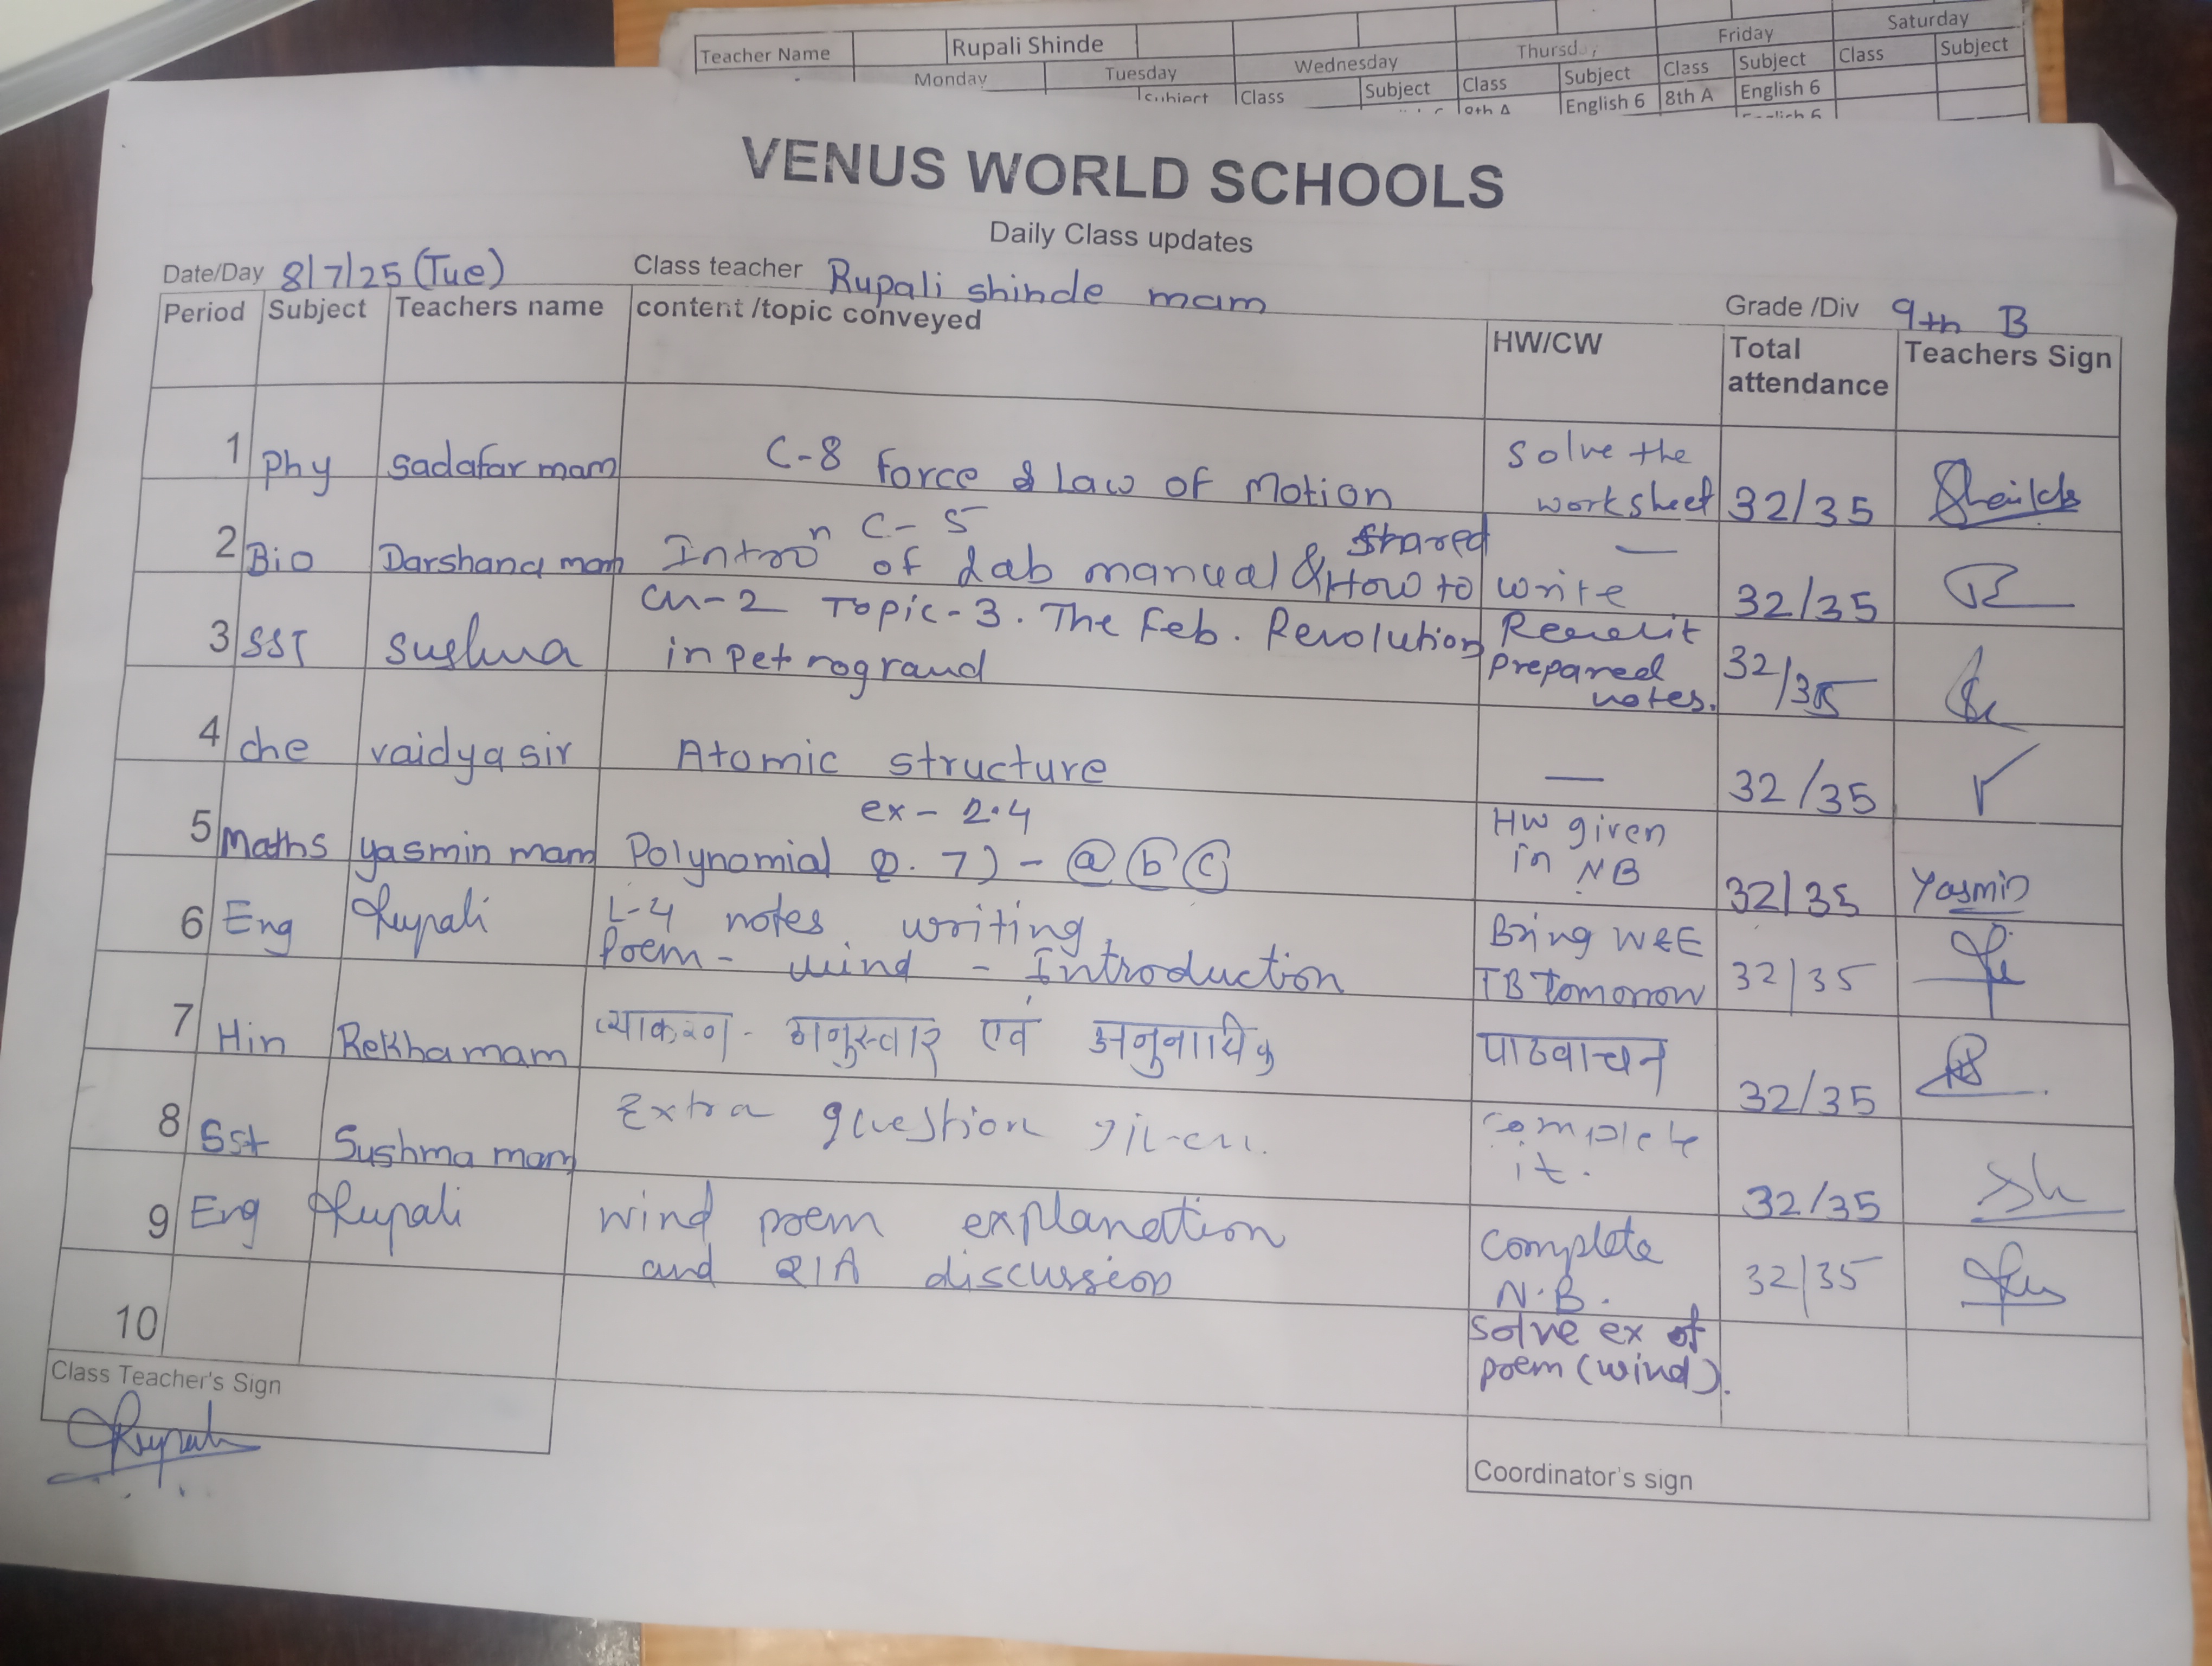 Teacher Name Rupali Shinde
Monday Tuesday Wednesday Friday Saturday
Class Subject Class Subject Class Subject Class Subject
English 6 8th A English 6
VENUS WORLD SCHOOLS
Daily Class updates
Date/Day 8/7/25 (Tue) Class teacher Rupali shinde mam Grade /Div 9th B
Period Subject Teachers name content /topic conveyed HW/CW Total attendance Teachers Sign
1 Phy sadafar mam C-8 Force & Law of Motion Solve the worksheet 32/35
2 Bio Darshana mam C-5 Introⁿ of Lab manual & How to write shared — 32/35
3 SST sushma Ch-2 Topic-3. The Feb. Revolution in Petrograud prepared notes. 32/35
4 che vaidya sir Atomic structure — 32/35
5 Maths yasmin mam ex-2.4 Polynomial Q. 7) - a b c HW given in NB 32/35 Yasmin
6 Eng Rupali L-4 notes writing, Poem - wind - Introduction Bring W&E TB Tomorrow 32/35
7 Hin Rekha mam व्याकरण - अनुस्वार एवं अनुनासिक पाठवाचन 32/35
8 Sst Sushma mam Extra question given. Complete it. 32/35
9 Eng Rupali wind poem explanation and Q/A discussion Complete N.B. 32/35
10 solve ex of poem (wind).
Class Teacher's Sign
Rupali
Coordinator's sign